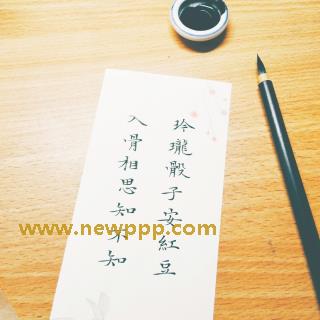 玲瓏骰子安紅豆
入骨相思知不知
www.newppp.com